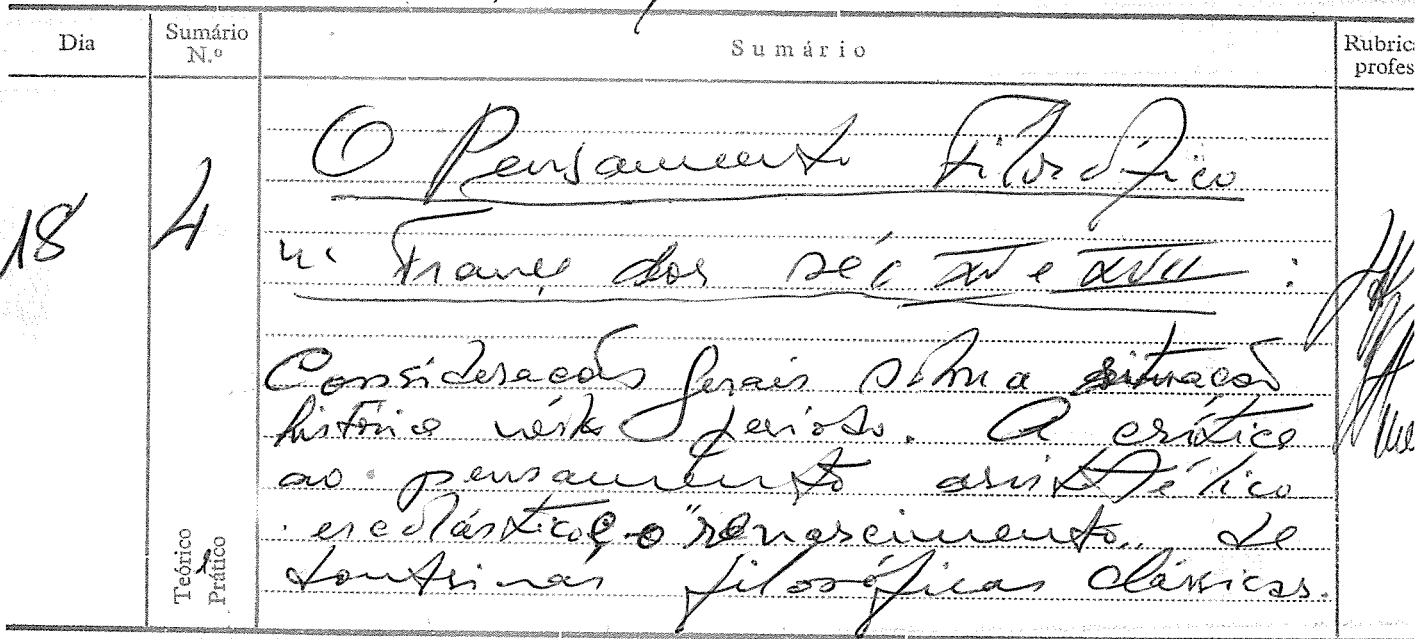 Dia
Sumário N.º
Sumário
Rubrica
profes
18
4
O Pensamento Filosófico
na França dos séc XVI e XVII :
Considerações gerais sobre a situação
histórica neste período. A crítica
ao pensamento aristotélico
escolástico e o "renascimento" de
doutrinas filosóficas clássicas.
Teórico
e
Prático